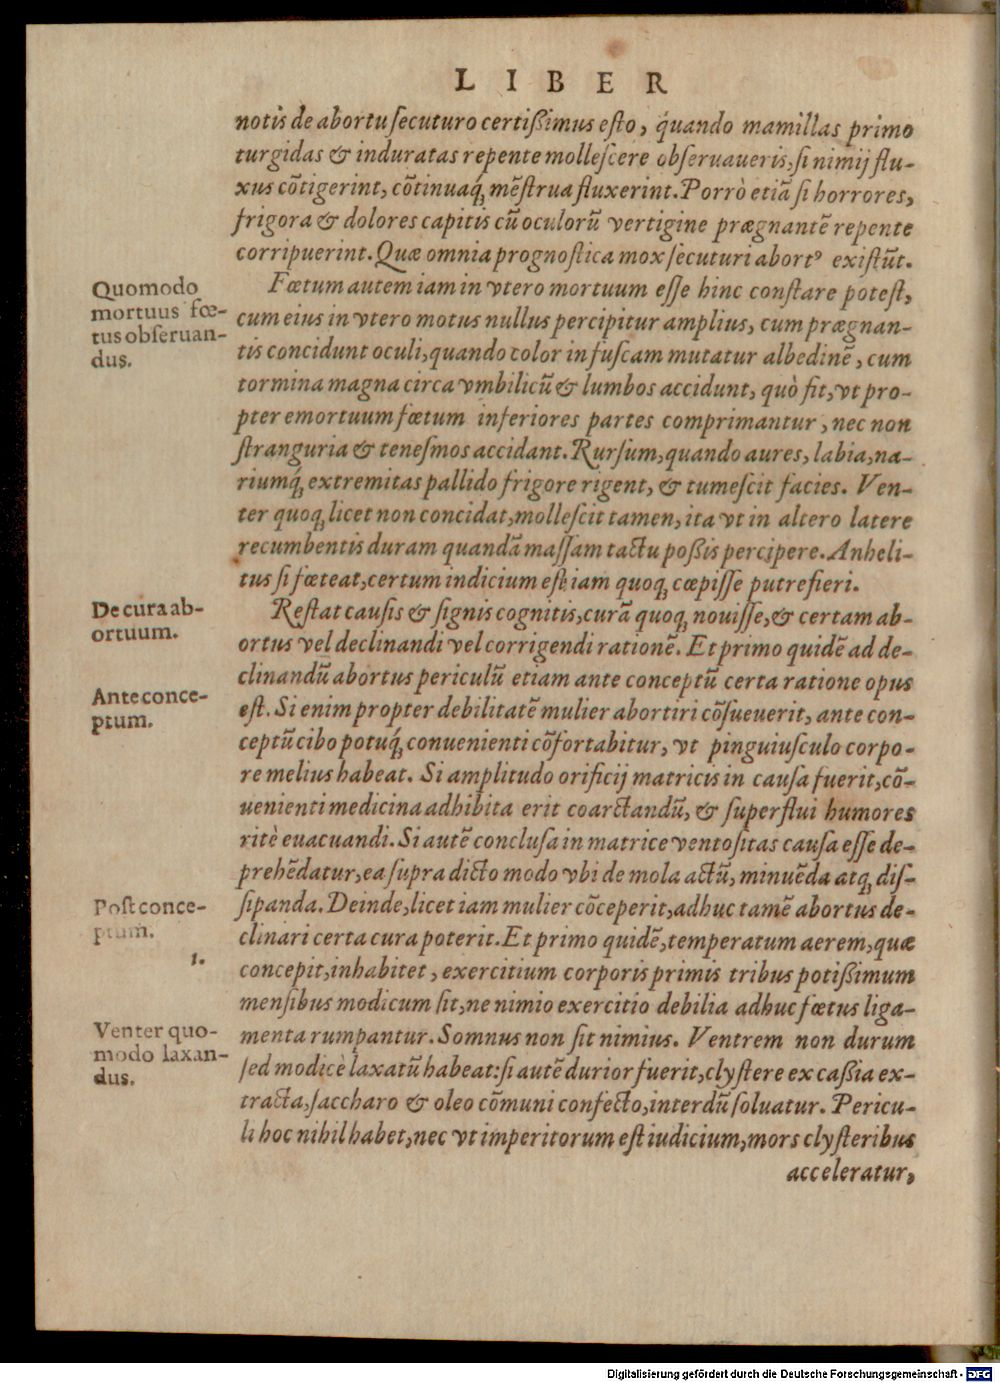 LIBER
notis de abortu secuturo certißimus esto, quando mamillas primo
turgidas & induratas repente mollescere obseruaueris, si nimij flu-
xus cõtigerint, cõtinuaq́; mẽstrua fluxerint. Porrò etiã si horrores,
frigora & dolores capitis cũ oculorũ vertigine prægnantẽ repente
corripuerint. Quæ omnia prognostica mox secuturi abortꝰ existũt.
Quomodo
mortuus fœ-
tus obseruan-
dus.
Fœtum autem iam in vtero mortuum esse hinc constare potest,
cum eius in vtero motus nullus percipitur amplius, cum prægnan-
tis concidunt oculi, quando color in fuscam mutatur albedinẽ, cum
tormina magna circa vmbilicũ & lumbos accidunt, quò fit, vt pro-
pter emortuum fœtum inferiores partes comprimantur, nec non
stranguria & tenesmos accidant. Rursum, quando aures, labia, na-
riumq́; extremitas pallido frigore rigent, & tumescit facies. Ven-
ter quoq; licet non concidat, mollescit tamen, ita vt in altero latere
recumbentis duram quandã massam tactu poßis percipere. Anheli-
tus si fœteat, certum indicium est iam quoq; cœpisse putrefieri.
De cura ab-
ortuum.
Restat causis & signis cognitis, curã quoq; nouisse, & certam ab-
ortus vel declinandi vel corrigendi rationẽ. Et primo quidẽ ad de-
clinandũ abortus periculũ etiam ante conceptũ certa ratione opus
Ante conce-
ptum.
est. Si enim propter debilitatẽ mulier abortiri cõsueuerit, ante con-
ceptũ cibo potuq́; conuenienti cõfortabitur, vt pinguiusculo corpo-
re melius habeat. Si amplitudo orificij matricis in causa fuerit, cõ-
uenienti medicina adhibita erit coarctandũ, & superflui humores
ritè euacuandi. Si autẽ conclusa in matrice ventositas causa esse de-
prehẽdatur, ea supra dicto modo vbi de mola actũ, minuẽda atq; dis-
sipanda. Deinde, licet iam mulier cõceperit, adhuc tamẽ abortus de-
Post conce-
ptum.
1.
clinari certa cura poterit. Et primo quidẽ, temperatum aerem, quæ
concepit, inhabitet, exercitium corporis primis tribus potißimum
mensibus modicum sit, ne nimio exercitio debilia adhuc fœtus liga-
menta rumpantur. Somnus non sit nimius. Ventrem non durum
Venter quo-
modo laxan-
dus.
sed modicè laxatũ habeat: si autẽ durior fuerit, clystere ex caßia ex-
tracta, saccharo & oleo cõmuni confecto, interdũ soluatur. Pericu-
li hoc nihil habet, nec vt imperitorum est iudicium, mors clysteribus
acceleratur,
Digitalisierung gefördert durch die Deutsche Forschungsgemeinschaft - DFG